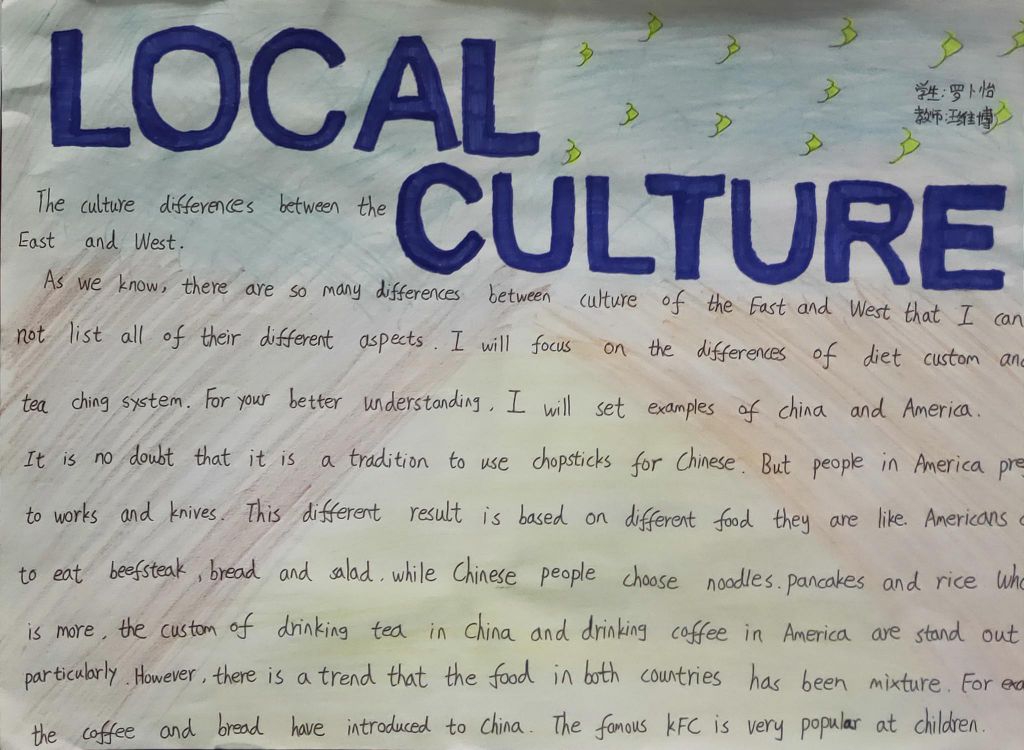 LOCAL
CULTURE
学生:罗卜怡
教师:汪维博
The culture differences between the
East and West.
As we know, there are so many differences between culture of the East and West that I can
not list all of their different aspects. I will focus on the differences of diet custom and
tea ching system. For your better understanding, I will set examples of china and America.
It is no doubt that it is a tradition to use chopsticks for Chinese. But people in America pre
to works and knives. This different result is based on different food they are like. Americans
to eat beefsteak, bread and salad. while Chinese people choose noodles. pancakes and rice Wh
is more, the custom of drinking tea in China and drinking coffee in America are stand out
particularly. However, there is a trend that the food in both countries has been mixture. For exa
the coffee and bread have introduced to China. The famous KFC is very popular at children.